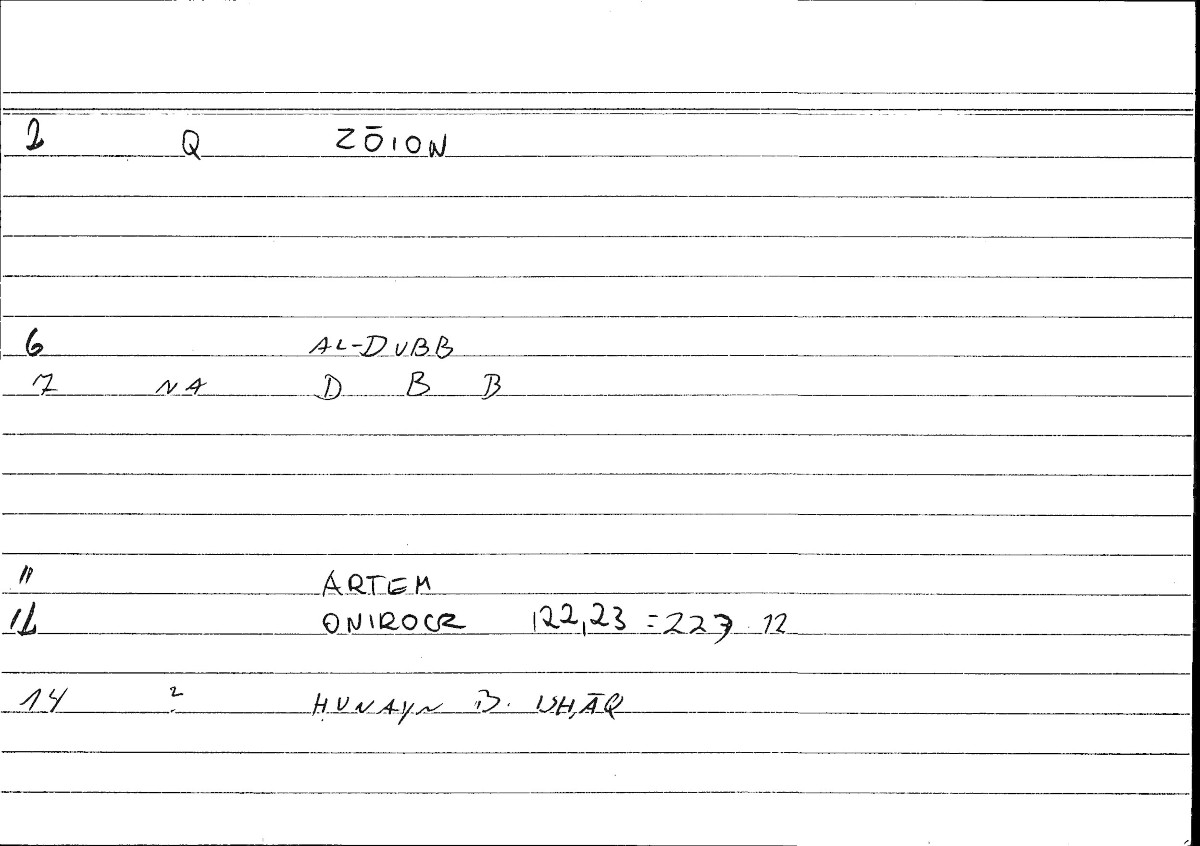 2 Q ZŌION
6 AL-DUBB
7 NA D B B
11 ARTEM
12 ONIROCR 122,23 = 227 12
14 ? ḤUNAYN B. ISḤĀQ